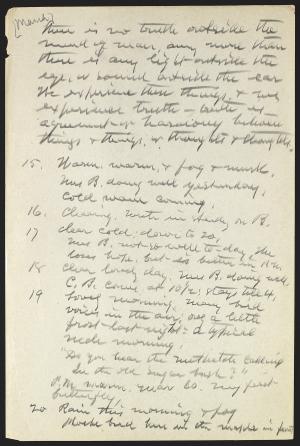 [March]
there is no truth outside the
mind of man, any more than
there is any light outside the
eye, or sound outside the ear
We experience these things, & we
experience truth — truth is
agreement or harmony between
things & things, or thoughts & thoughts.
15. Warm, warm, & fog & murk.
Mrs B. doing well yesterday,
Cold wave coming.
16. Clearing. Write in study on B.
17 clear cold; down to 20,
Mrs B. not so well to-day, She
loses hope, but is better in P.M.
18 Clear lovely day, Mrs B. doing well,
C. B. came at 10/2; stays till 4,
19 Lovely morning, many bird
voices in the air, only a little
frost last night; a typical
mch morning.
"Do you hear the nuthatch calling
in the old sugar bush?"
P.M. warm, near 60. My first
butterfly,
20 Rain this morning & fog
bird here in the maple in front